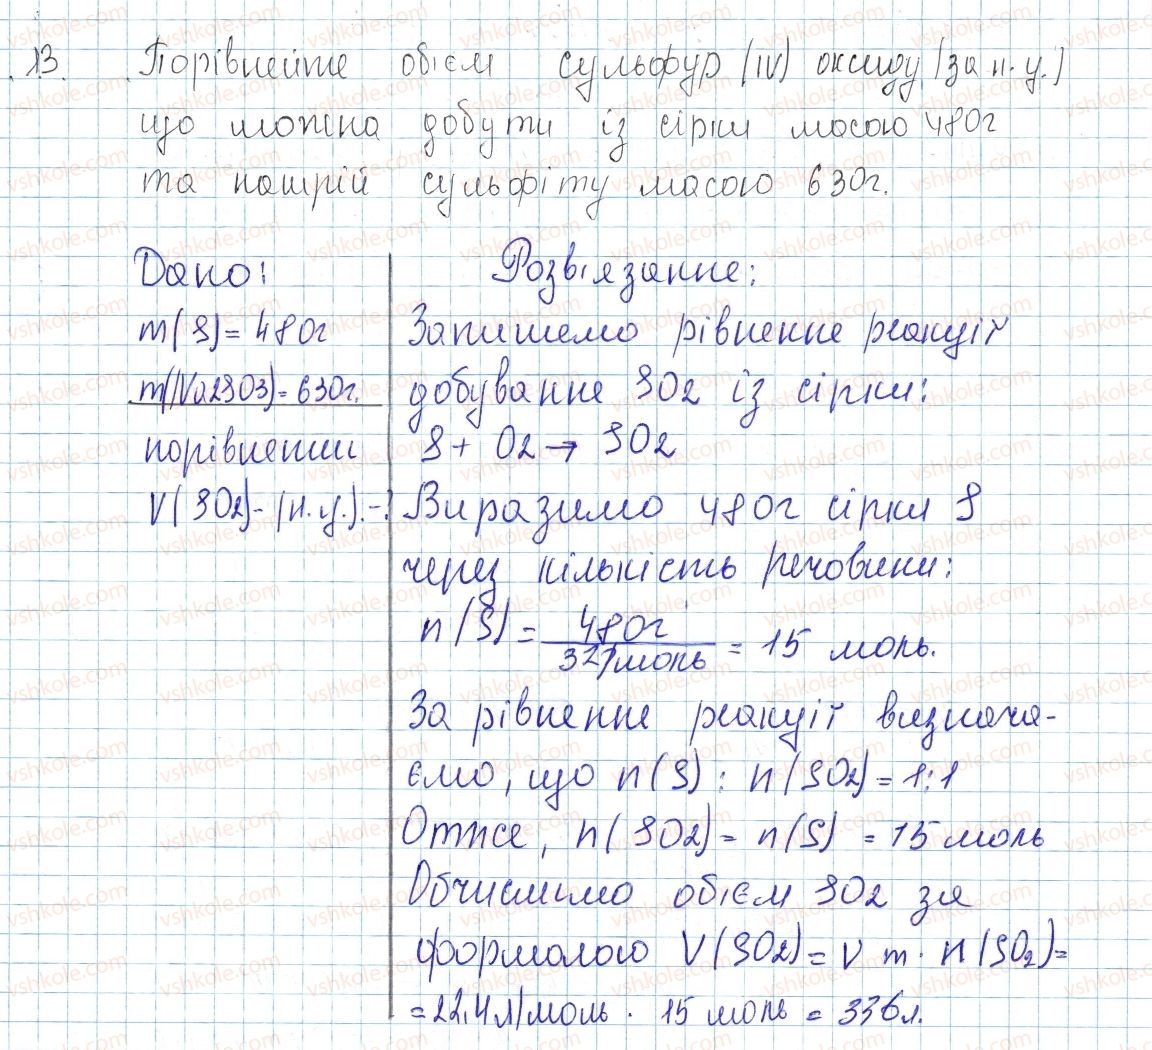 13. Порівнейте обієм сульфур (IV) оксиду (за н. у.)
що можна добути із сірки масою 480г
та натрій сульфіту масою 630г.
Дано:
m(S)= 480г
m(Na2SO3)= 630г.
порівнети
V(SO2)- (н.у.).-?
Розвіязанне:
Запишемо рівненне реакції
добуванне SO2 із сірки:
S + O2 → SO2
Виразимо 480г сірки S
через кількість речовини:
n(S) = 480г / 32г/моль = 15 моль.
За рівненне реакції визнача-
ємо, що n(S) : n(SO2) = 1:1
Отже, n(SO2) = n(S) = 15 моль
Обчислимо обієм SO2 за
формолою V(SO2) = V m · n(SO2) =
= 22,4л/моль · 15 моль = 336л.